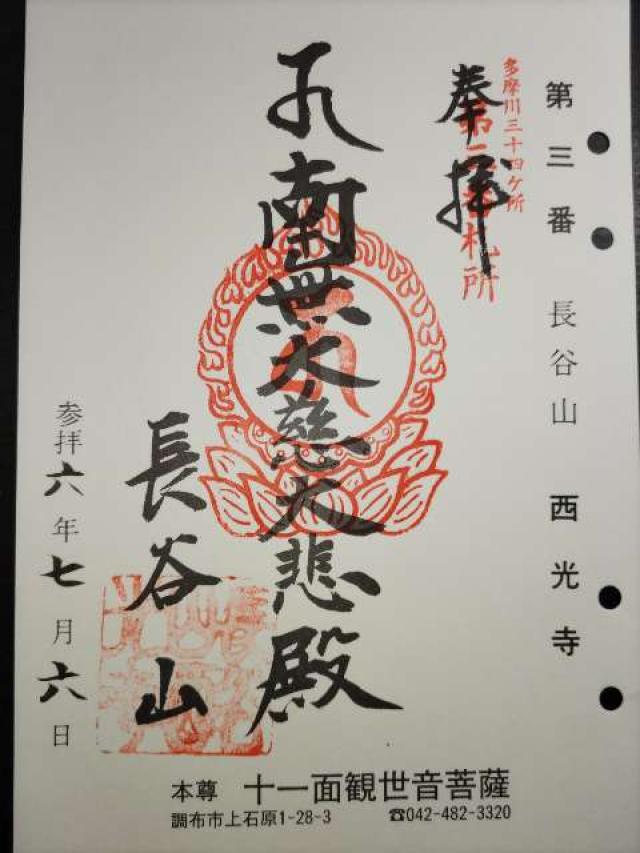 第三番 長谷山 西光寺
多摩川三十四ヶ所
第三番札所
奉拝
南無大慈大悲殿
長谷山
参拝六年七月六日
本尊 十一面観世音菩薩
調布市上石原1-28-3 ☎042-482-3320